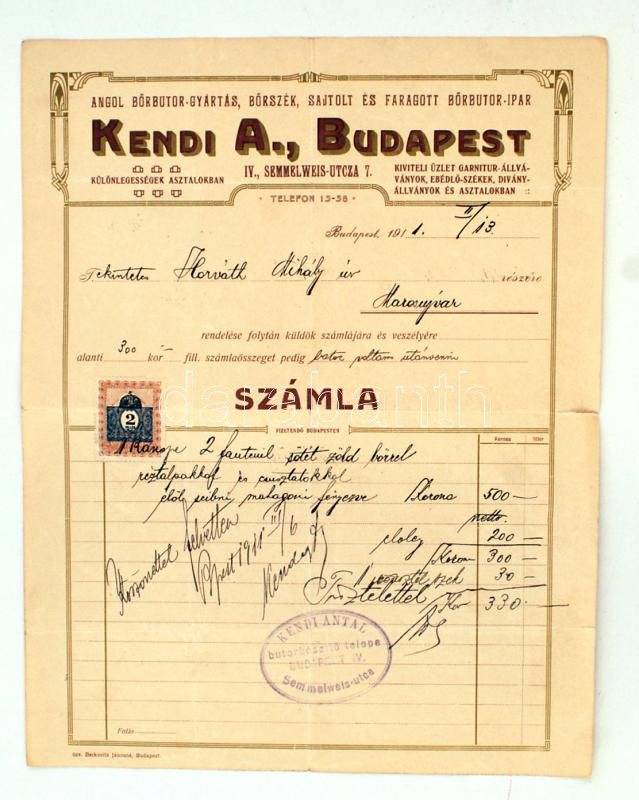 ANGOL BŐRBUTOR-GYÁRTÁS, BŐRSZÉK, SAJTOLT ÉS FARAGOTT BŐRBUTOR-IPAR
KENDI A., BUDAPEST
KÜLÖNLEGESSÉGEK ASZTALOKBAN
IV., SEMMELWEIS-UTCZA 7.
KIVITELI ÜZLET GARNITUR-ÁLLVÁ-
NYOK, EBÉDLŐ-SZÉKEK, DIVÁNY-
ÁLLVÁNYOK ÉS ASZTALOKBAN
TELEFON 15-58
Budapest, 1911. II/13.
Tekintetes Horváth Mihály úr részére
Marosujvar
rendelése folytán küldök számlájára és veszélyére
alanti 300 kor fill. számlaösszeget pedig bator voltam utánvenni
darabanth
SZÁMLA
2
FIZETENDŐ BUDAPESTEN
Korona fillér
1 Kanape 2 fauteuil sötét zöld bőrrel
és
mahagoni Korona 500 —
netto
előleg 200 —
Köszönettel felvettem
Bpest 1911 II/6
Korona 300 —
1 szek 30 —
Tisztelettel
Kor 330 —
KENDI ANTAL
butorkészítő telepe
BUDAPEST IV.
Semmelweis-utca
Folio
özv. Berkovits Jánosné, Budapest.